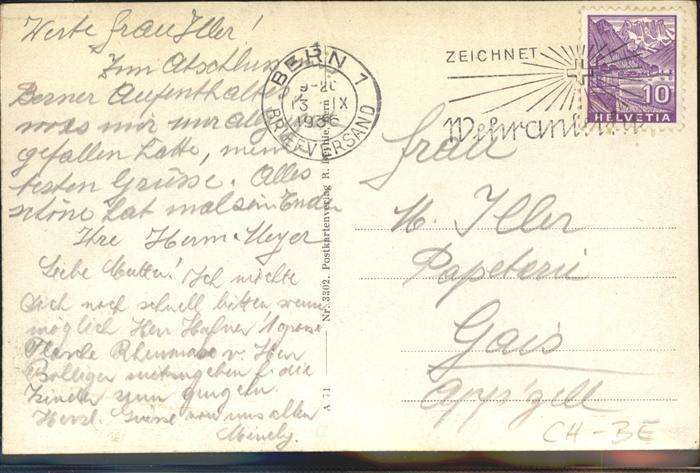 Werte Frau Iller!
Zum Abschluss
Berner Aufenthaltes
was mir
gefallen hatte, mein
besten Grüsse. Alles
schöne hat mal sein Enden
Ihre Herm. Meyer
Liebe Mutter! Ich möchte
Dich noch schnell bitten wenn
möglich Herr Hafner 1 grosse
v. Herr
Bolliger mitzugeben f. die
zum gurgeln.
Herzl. Grüsse von uns allen
BERN 1
13 IX
1936
BRIEFVERSAND
ZEICHNET
Wehranleihe
10
HELVETIA
Nr. 3302. Postkartenverlag R.
A 71
Frau
M. Iller
Papeterie
Gais
App'zell
CH-BE